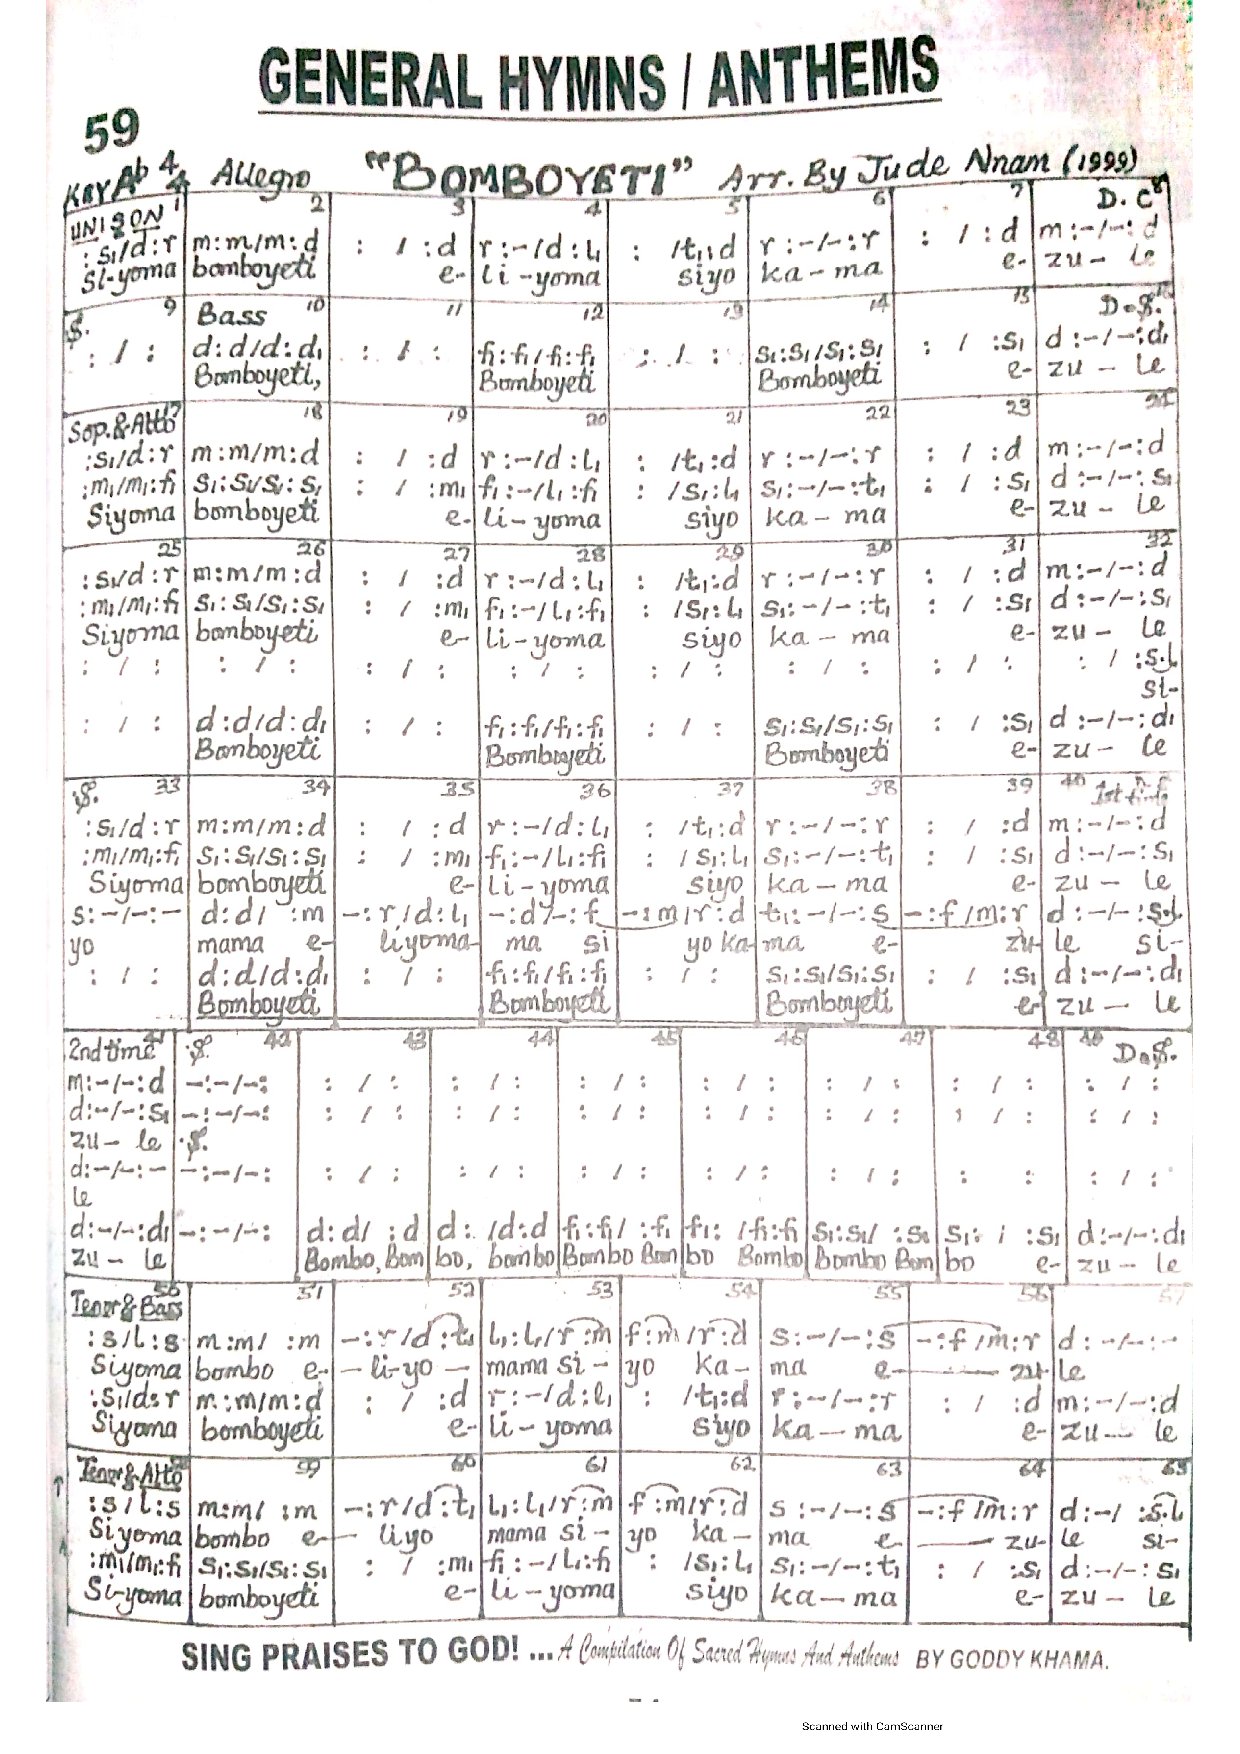 GENERAL HYMNS / ANTHEMS
59
KEY Ab 4/4 Allegro "BOMBOYETI" Arr. By Jude Nnam (1999)
1 2 3 4 5 6 7 D.C 8
UNISON
: s₁/d : r m:m/m:d : / :d r:-/d:l₁ : /t₁:d r:-/-:r : / :d m:-/-:d
Si-yoma bomboyeti e- li-yoma siyo ka-ma e- zu- le
.S. 9 Bass 10 11 12 13 14 15 D.S.
: / : d:d/d:d₁ : / : f₁:f₁/f₁:f₁ : / : s₁:s₁/s₁:s₁ : / :s₁ d:-/-:d₁
Bomboyeti, Bomboyeti Bomboyeti e- zu- le
Sop.&Alto 17 18 19 20 21 22 23 24
:s₁/d:r m:m/m:d : / :d r:-/d:l₁ : /t₁:d r:-/-:r : / :d m:-/-:d
:m₁/m₁:f₁ s₁:s₁/s₁:s₁ : / :m₁ f₁:-/l₁:f₁ : /s₁:l₁ s₁:-/-:t₁ : / :s₁ d:-/-:s₁
Siyoma bomboyeti e- li-yoma siyo ka-ma e- zu- le
25 26 27 28 29 30 31 32
:s₁/d:r m:m/m:d : / :d r:-/d:l₁ : /t₁:d r:-/-:r : / :d m:-/-:d
:m₁/m₁:f₁ s₁:s₁/s₁:s₁ : / :m₁ f₁:-/l₁:f₁ : /s₁:l₁ s₁:-/-:t₁ : / :s₁ d:-/-:s₁
Siyoma bomboyeti e- li-yoma siyo ka-ma e- zu- le
: / : : / : : / : : / : : / : : / : : / : : / :s.l
si-
: / : d:d/d:d₁ : / : f₁:f₁/f₁:f₁ : / : s₁:s₁/s₁:s₁ : / :s₁ d:-/-:d₁
Bomboyeti Bomboyeti Bomboyeti e- zu- le
.S. 33 34 35 36 37 38 39 40 1st time
:s₁/d:r m:m/m:d : / :d r:-/d:l₁ : /t₁:d r:-/-:r : / :d m:-/-:d
:m₁/m₁:f₁ s₁:s₁/s₁:s₁ : / :m₁ f₁:-/l₁:f₁ : /s₁:l₁ s₁:-/-:t₁ : / :s₁ d:-/-:s₁
Siyoma bomboyeti e- li-yoma siyo ka-ma e- zu- le
s:-/-:- d:d/ :m -:r/d:l₁ -:d/-:f -:m/r:d t₁:-/-:s -:f/m:r d:-/-:s.l
yo mama e- liyoma- ma si yo ka-ma e- zu- le si-
: / : d:d/d:d₁ : / : f₁:f₁/f₁:f₁ : / : s₁:s₁/s₁:s₁ : / :s₁ d:-/-:d₁
Bomboyeti Bomboyeti Bomboyeti e- zu- le
2nd time 41 .S. 42 43 44 45 46 47 48 49 D.S.
m:-/-:d -:-/-: : / : : / : : / : : / : : / : : / : : / :
d:-/-:s₁ -:-/-: : / : : / : : / : : / : : / : : / : : / :
zu- le .S.
d:-/-:- -:-/-: : / : : / : : / : : / : : / : : : : / :
le
d:-/-:d₁ -:-/-: d:d/ :d d: /d:d f₁:f₁/ :f₁ f₁: /f₁:f₁ s₁:s₁/ :s₁ s₁: / :s₁ d:-/-:d₁
zu- le Bombo, Bom bo, bombo Bombo Bom bo Bombo Bombo Bom bo e- zu- le
Tenor & Bass 50 51 52 53 54 55 56 57
:s/l:s m:m/ :m -:r/d:t₁ l₁:l₁/r:m f:m/r:d s:-/-:s -:f/m:r d:-/-:-
Siyoma bombo e- -li-yo- mama si- yo ka- ma e- zu- le
:s₁/d:r m:m/m:d : / :d r:-/d:l₁ : /t₁:d r:-/-:r : / :d m:-/-:d
Siyoma bomboyeti e- li-yoma siyo ka-ma e- zu- le
Tenor & Alto 59 60 61 62 63 64 65
:s/l:s m:m/ :m -:r/d:t₁ l₁:l₁/r:m f:m/r:d s:-/-:s -:f/m:r d:-/ :s.l
Siyoma bombo e- liyo mama si- yo ka- ma e zu- le si-
:m₁/m₁:f₁ s₁:s₁/s₁:s₁ : / :m₁ f₁:-/l₁:f₁ : /s₁:l₁ s₁:-/-:t₁ : / :s₁ d:-/-:s₁
Si-yoma bomboyeti e- li-yoma siyo ka-ma e- zu- le
SING PRAISES TO GOD! ... A Compilation Of Sacred Hymns And Anthems BY GODDY KHAMA.
Scanned with CamScanner